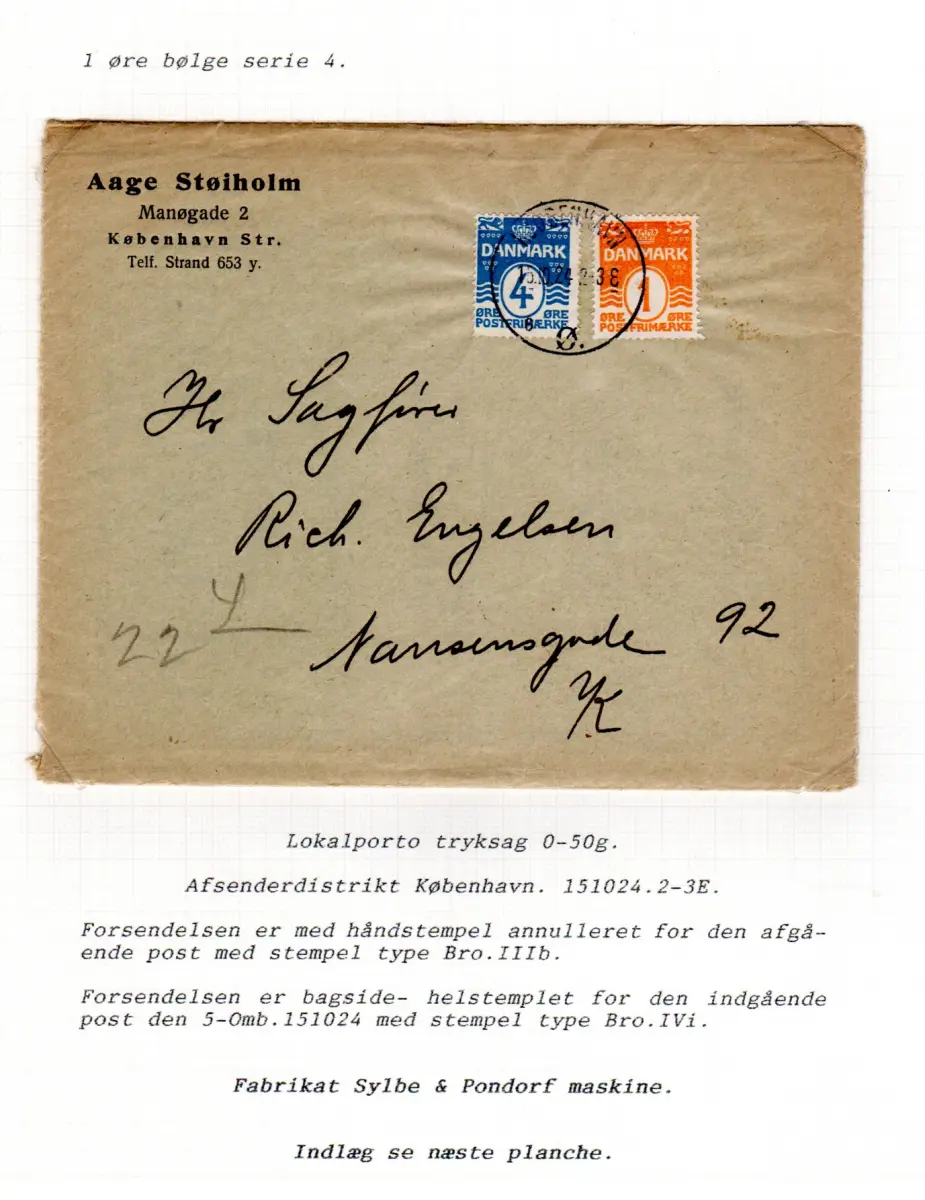 1 øre bølge serie 4.
Aage Støiholm
Manøgade 2
København Str.
Telf. Strand 653 y.
KØBENHAVN
DANMARK DANMARK
15.10.24 2-3 E
4 1
ØRE ØRE ØRE ØRE
POSTFRIMÆRKE POSTFRIMÆRKE
8 Ø.
Hr Sagfører
Rich. Engelsen
22 4
Nansensgade 92
K
Lokalporto tryksag 0-50g.
Afsenderdistrikt København. 151024.2-3E.
Forsendelsen er med håndstempel annulleret for den afgå-
ende post med stempel type Bro.IIIb.
Forsendelsen er bagside- helstemplet for den indgående
post den 5-Omb.151024 med stempel type Bro.IVi.
Fabrikat Sylbe & Pondorf maskine.
Indlæg se næste planche.